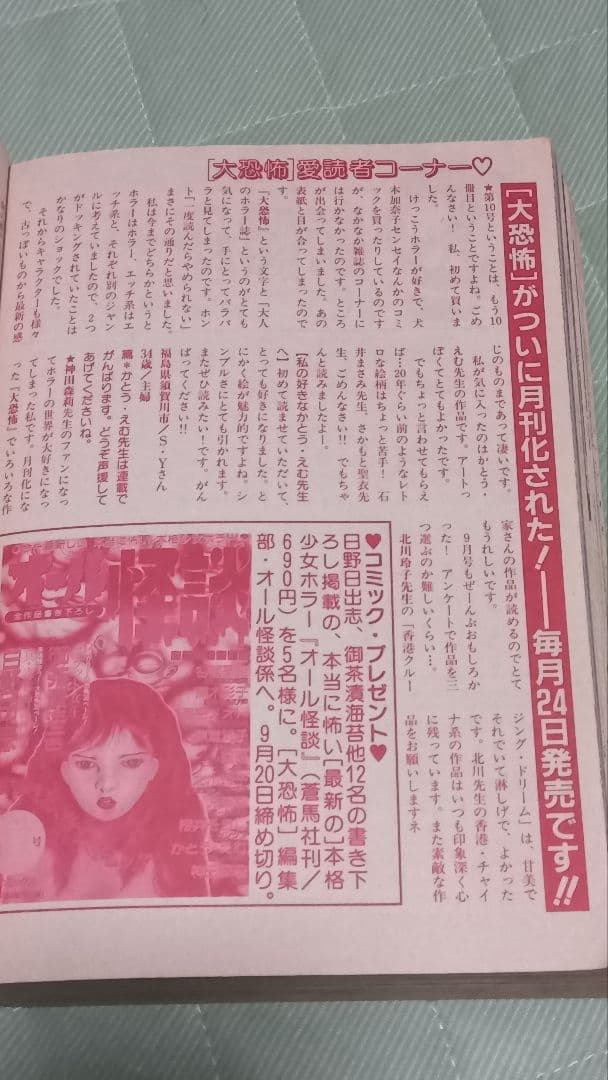 [大恐怖]愛読者コーナー♡
[大恐怖]がついに月刊化された!──毎月24日発売です!!
★第10号ということは、もう10
冊目ということですよね。ごめ
んなさい！ 私、初めて買いま
した。
けっこうホラーが好きで、犬
木加奈子センセイなんかのコミ
ックを買ったりしているのです
が、なかなか雑誌のコーナーに
は行かなかったのです。ところ
が出会ってしまいました。あの
表紙と目が合ってしまったので
す。
『大恐怖』という文字と「大人
のホラー誌」というのがとても
気になって、手にとってパラパ
ラと見てしまったのです。ホン
ト「一度読んだらやめられない」
まさにその通りだと思いました。
私は今までどちらかというと
ホラーはホラー、エッチ系はエ
ッチ系と、それぞれ別のジャン
ルに考えていましたので、2つ
がドッキングされていたことは
かなりのショックでした。
それからキャラクターも様々
で、古っぽいものから最新の感
じのものまであって凄いです。
私が気に入ったのはかとう・
えむ先生の作品です。アートっ
ぽくてとてもよかったです。
でもちょっと言わせてもらえ
ば…20年ぐらい前のようなレト
ロな絵柄はちょっと苦手！ 石
井まさみ先生、さかもと聖衣先
生、ごめんなさい!! でもちゃ
んと読みましたよー。
【私の好きなかとう・えむ先生
へ】初めて読ませていただいて、
とっても好きになりました。と
にかく絵が魅力的ですよね。シ
ンプルさにとても引かれます。
またぜひ読みたい！です。がん
ばってください!!
福島県須賀川市／S・Yさん
34歳／主婦
編＊かとう・えむ先生は連載で
がんばります。どうぞ声援して
あげてくださいね。
★神田森莉先生のファンになっ
てホラーの世界が大好きになっ
てしまった私です。月刊化になっ
た『大恐怖』でいろいろな作
家さんの作品が読めるのでとて
もうれしいです。
9月号もぜーんぶおもしろか
った！ アンケートで作品を三
つ選ぶのか難しいくらい…。
北川玲子先生の「香港クルー
ジング・ドリーム」は、甘美で
それでいて淋しげで、よかった
です。北川先生の香港・チャイ
ナ系の作品はいつも印象深く心
に残っています。また素敵な作
品をお願いしますネ
♥コミック・プレゼント♥
日野日出志、御茶漬海苔他12名の書き下
ろし掲載の、本当に怖い[最新の]本格
少女ホラー『オール怪談』(蒼馬社刊／
690円)を5名様に。[大恐怖]編集
部・オール怪談係へ。9月20日締め切り。
オール怪談
全作品書き下ろし
号